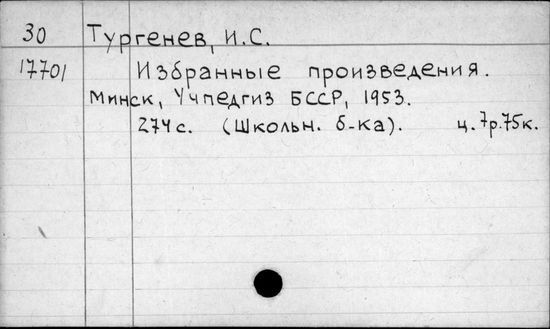 30 Тургенев, И.С.
17701 Избранные произведения.
Минск, Учпедгиз БССР, 1953.
274 с. (Школьн. б-ка). ц. 7р.75к.